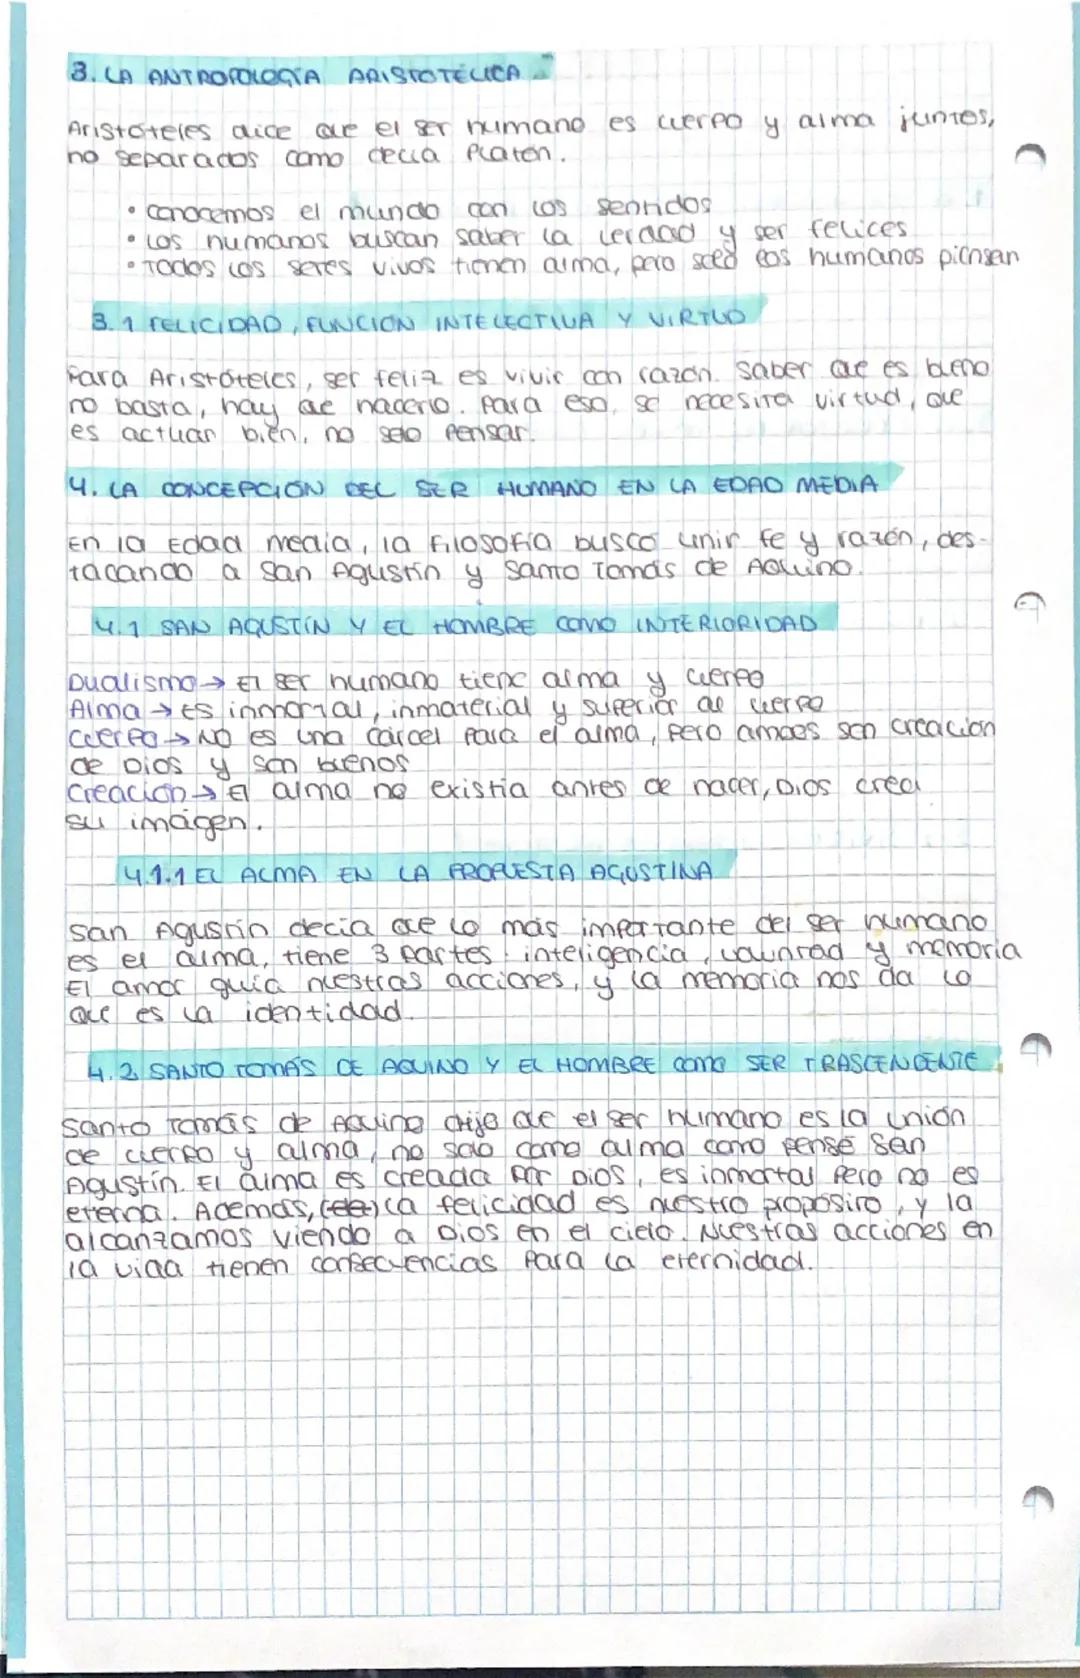 3. LA ANTROPOLOGÍA ARISTOTÉLICA
Aristóteles dice que el ser humano es cuerpo y alma juntos,
no separados como decía Platón.
• Conocemos el mundo con los sentidos
• Los humanos buscan saber la verdad y ser felices
• Todos los seres vivos tienen alma, pero solo los humanos piensan
3.1 FELICIDAD, FUNCIÓN INTELECTIVA Y VIRTUD
Para Aristóteles, ser feliz es vivir con razón. Saber que es bueno
no basta, hay que hacerlo. Para eso, se necesita virtud, que
es actuar bien, no solo pensar.
4. LA CONCEPCIÓN DEL SER HUMANO EN LA EDAD MEDIA
En la Edad media, la filosofía busco unir fe y razón, des-
tacando a San Agustín y Santo Tomás de Aquino.
4.1 SAN AGUSTÍN Y EL HOMBRE COMO INTERIORIDAD
Dualismo → El ser humano tiene alma y cuerpo
Alma → Es inmortal, inmaterial y superior al cuerpo
Cuerpo → No es una cárcel para el alma, pero ambos son creación
de Dios y son buenos
Creación → El alma no existía antes de nacer, Dios crea
su imágen.
4.1.1 EL ALMA EN LA PROPUESTA AGUSTINA
San Agustín decía que lo más importante del ser humano
es el alma, tiene 3 partes: inteligencia, voluntad y memoria
El amor guía nuestras acciones, y la memoria nos da lo
que es la identidad.
4.2 SANTO TOMÁS DE AQUINO Y EL HOMBRE COMO SER TRASCENDENTE
Santo Tomás de Aquino dijo que el ser humano es la unión
de cuerpo y alma, no solo como alma como pensé San
Agustín. El alma es creada por Dios, es inmortal pero no es
eterna. Además, la felicidad es nuestro propósito, y la
alcanzamos viendo a Dios en el cielo. Nuestras acciones en
la vida tienen consecuencias para la eternidad.